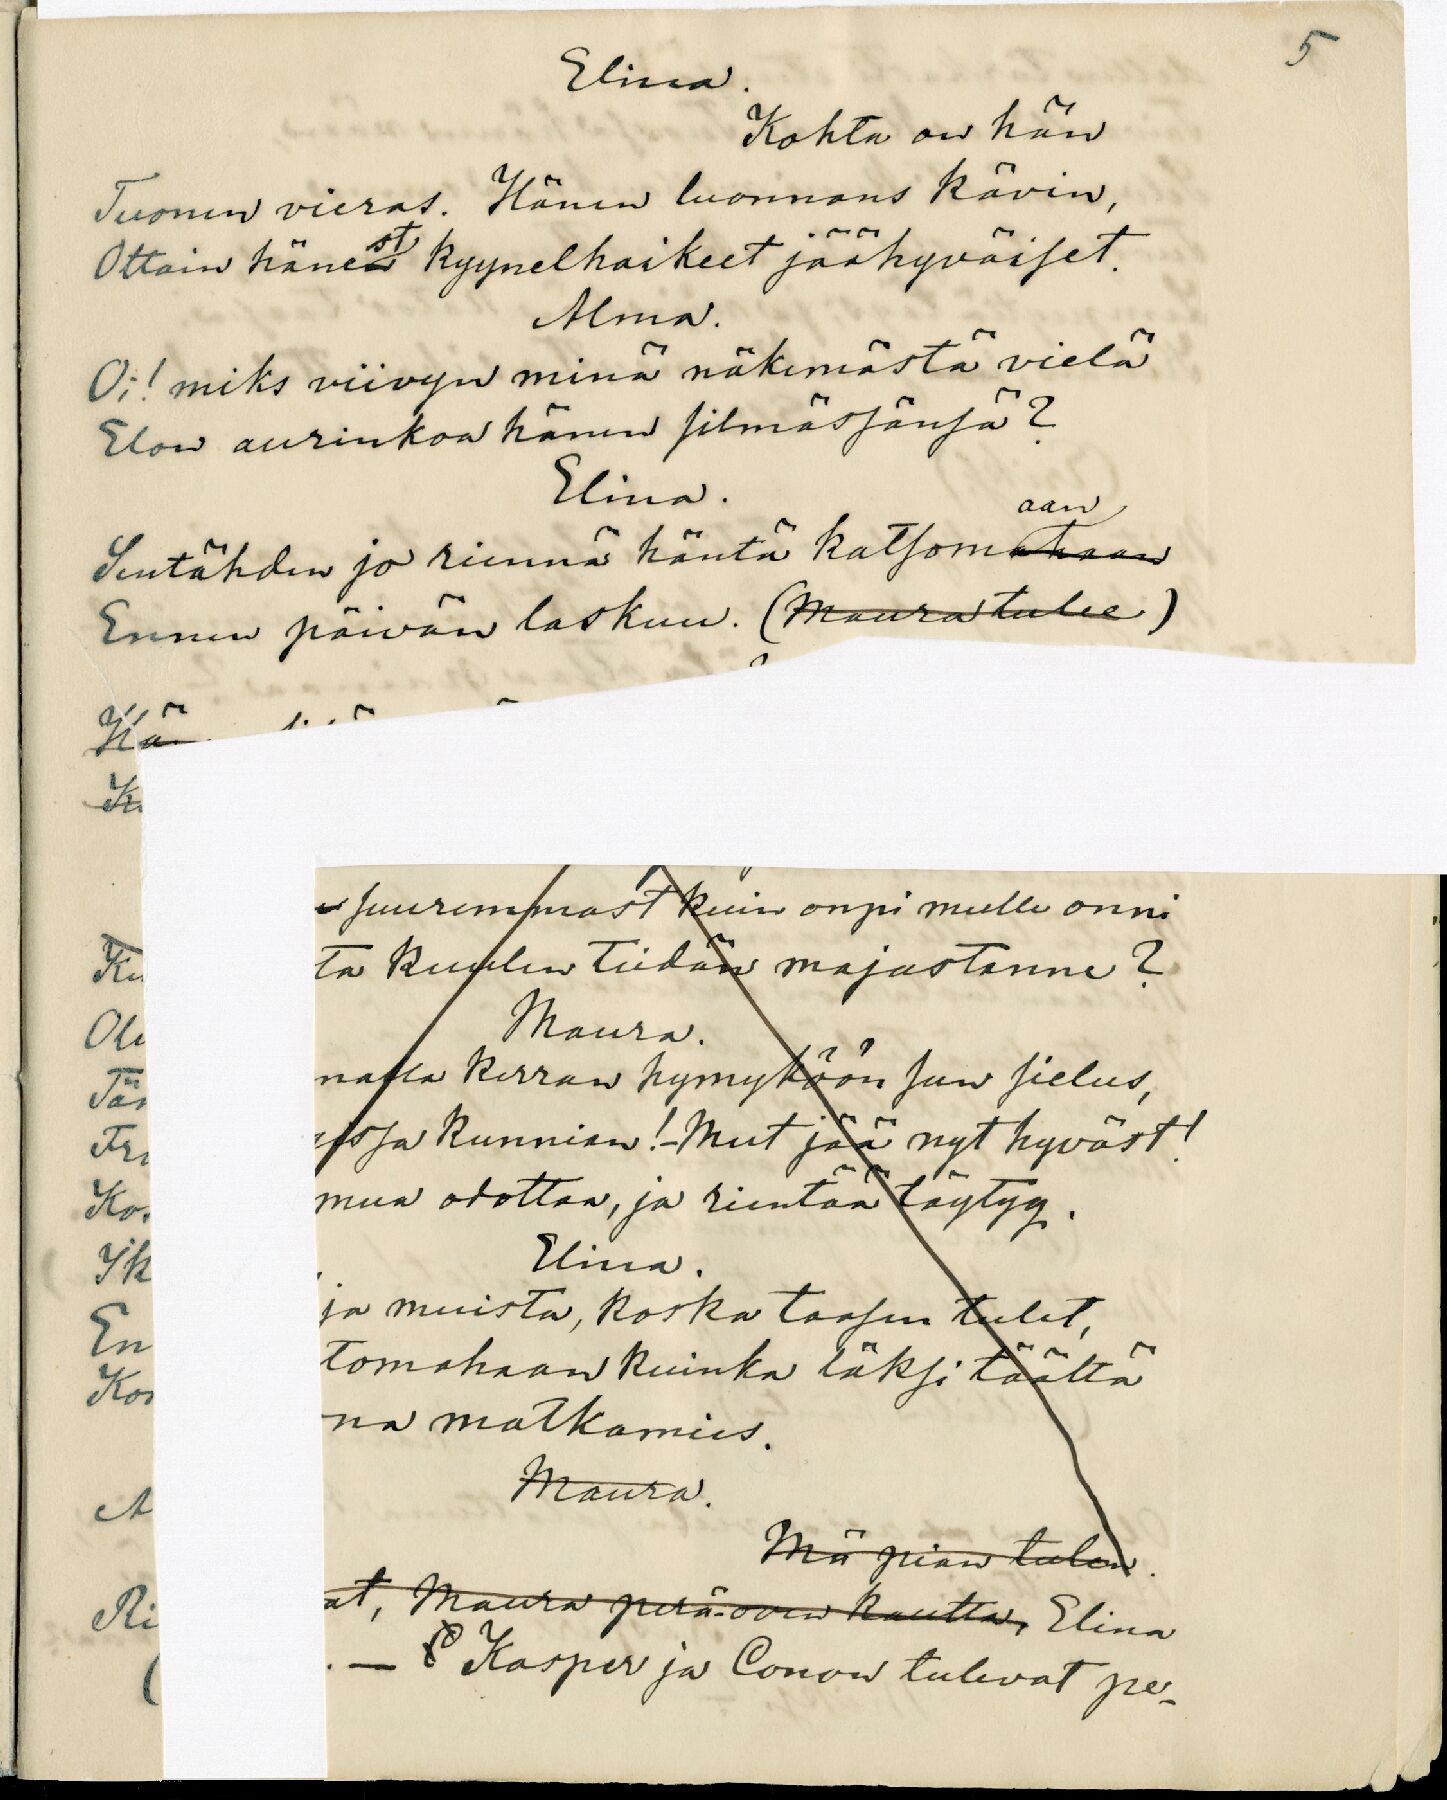 5
Elina.
Kohta on hän
Tuonen vieras. Hänen luonnans kävin,
Ottain hänest kyynelhaikeet jäähyväiset.
Alma.
Oi! miks viivyn minä näkemästä vielä
Elon aurinkoa hänen silmässänsä?
Elina.
aan
Sentähden jo riennä häntä katsomahaan
Ennen päivän laskuu. (Maura tulee)
Hän
K
suuremmast kuin onpi mulle onni
Ku ta kuulen teidän majastanne?
Maura.
Ole nasta kerran hymyköön sun sielus,
Täs ssa kunnian!–Mut jää nyt hyväst!
Fri mua odottaa, ja rientää täytyy.
Elina.
Kos
Yk ja muista, koska taasen tulet,
En tomahaan kuinka läksi täältä
Kos na matkamies.
Maura.
A
Mä pian tulen.
Ri at, Maura perä-oven kautta, Elina
( . — Kasper ja Conon tulevat pe-